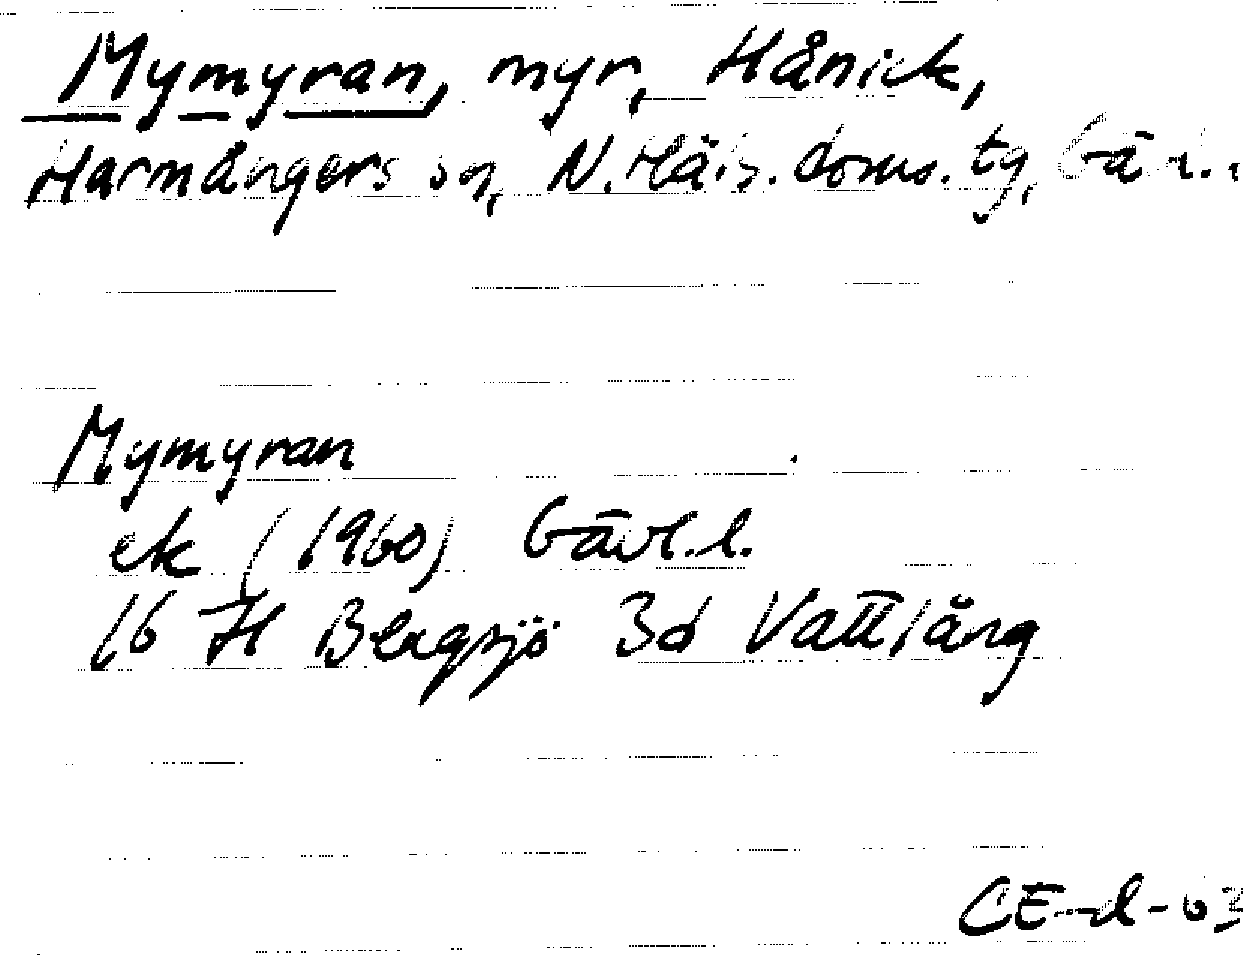 Mymyran, myr, Hånick,
Harmångers sn, N. Häls. doms. tg, Gävl.
Mymyran
ek (1960) Gävl.l.
16 H Bergsjö 3d Vattlång
CE-d-63